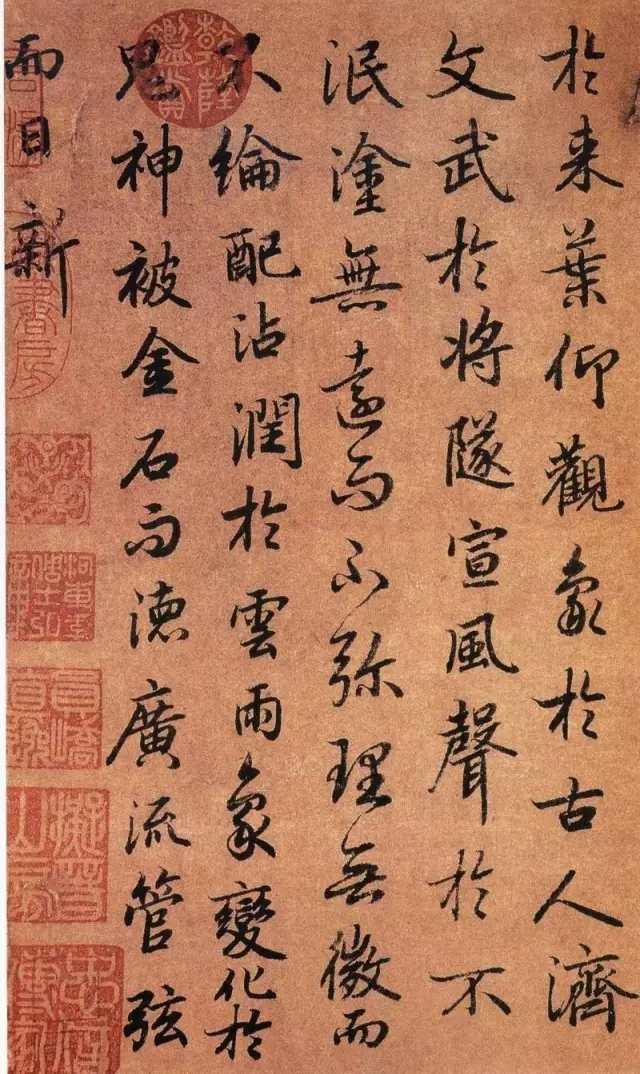 於来葉仰觀象於古人濟
文武於将隧宣風聲於不
泯塗無遠而不弥理無微而
不綸配沾潤於雲雨象變化於
鬼神被金石而徳廣流管弦
而日新
乾隆鑑賞